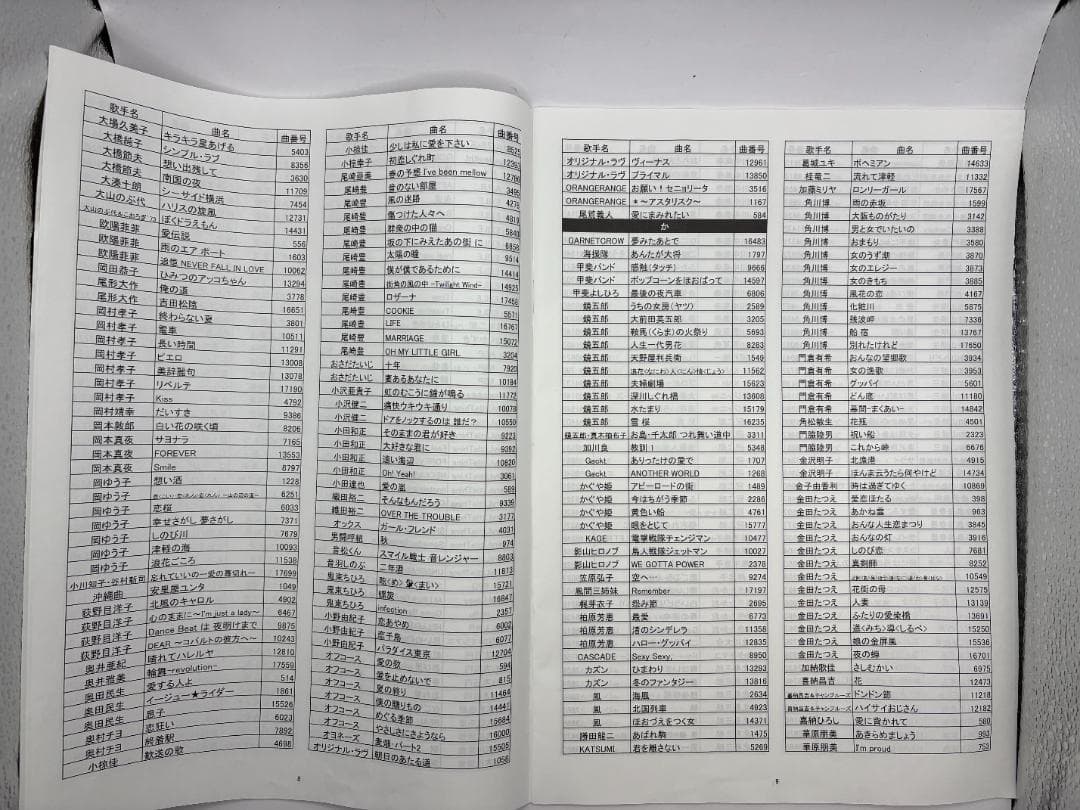 歌手名 曲名 曲番号
大場久美子 キラキラ星あげる 5403
大橋純子 シンプル・ラブ 8356
大橋節夫 想い出残して 3630
大橋節夫 南国の夜 11709
大湊十朗 シーサイド横浜 7454
大山のぶ代 ハリスの旋風 12731
大山のぶ代&こおろぎ'73 ぼくドラえもん 14431
欧陽菲菲 愛伝説 556
欧陽菲菲 雨のエアポート 1603
欧陽菲菲 追憶 NEVER FALL IN LOVE 10062
岡田恭子 ひみつのアッコちゃん 13294
尾形大作 俺の道 3778
尾形大作 吉田松陰 16651
岡村孝子 終わらない夏 3801
岡村孝子 電車 10511
岡村孝子 長い時間 11291
岡村孝子 ピエロ 13008
岡村孝子 美辞麗句 13078
岡村孝子 リベルテ 17190
岡村孝子 Kiss 4792
岡村靖幸 だいすき 9386
岡本敦郎 白い花の咲く頃 8206
岡本真夜 サヨナラ 7165
岡本真夜 FOREVER 13553
岡本真夜 Smile 8797
岡ゆう子 想い酒 1228
岡ゆう子 6251
岡ゆう子 恋桜 6033
岡ゆう子 幸せさがし夢さがし 7371
岡ゆう子 しのび川 7679
岡ゆう子 津軽の海 10093
岡ゆう子 浪花ごころ 11538
小川知子・谷村新司 忘れていいの-愛の幕切れ- 17099
沖縄曲 安里屋ユンタ 1049
荻野目洋子 北風のキャロル 4902
荻野目洋子 心のままに〜I'm just a lady〜 6467
荻野目洋子 Dance Beat は夜明けまで 9875
荻野目洋子 DEAR 〜コバルトの彼方へ〜 10243
奥井亜紀 晴れてハレルヤ 12810
奥井雅美 輪舞-revolution- 17559
奥田民生 愛する人よ 514
奥田民生 イージュー★ライダー 1861
奥田民生 息子 15526
奥村チヨ 恋狂い 6023
奥村チヨ 終着駅 7892
小椋佳 歓送の歌 4698
歌手名 曲名 曲番号
小椋佳 少しは私に愛を下さい 8525
小桜幸子 初恋しぐれ町 12393
尾崎亜美 春の予感 I've been mellow 12706
尾崎豊 音のない部屋 3499
尾崎豊 風の迷路 4278
尾崎豊 傷つけた人々へ 4819
尾崎豊 群衆の中の猫 5840
尾崎豊 坂の下にみえたあの街に 6858
尾崎豊 太陽の瞳 9514
尾崎豊 僕が僕であるために 14414
尾崎豊 街角の風の中 -Twilight Wind- 14925
尾崎豊 ロザーナ 17458
尾崎豊 COOKIE 5571
尾崎豊 LIFE 16767
尾崎豊 MARRIAGE 15072
尾崎豊 OH MY LITTLE GIRL 3204
おさだたいじ 十年 7920
おさだたいじ 妻あるあなたに 10184
小沢亜貴子 虹のむこうに鐘が鳴る 11772
小沢健二 痛快ウキウキ通り 10078
小沢健二 ドアをノックするのは誰だ? 10550
小田和正 そのままの君が好き 9223
小田和正 大好きな君に 9392
小田和正 遠い海辺 10620
小田和正 Oh! Yeah! 3061
小田達也 愛の嵐 589
織田裕二 そんなもんだろう 9339
織田裕二 OVER THE TROUBLE 3177
オックス ガール・フレンド 4031
男闘呼組 秋 974
音松くん スマイル戦士 音レンジャー 8803
音羽しのぶ 二年酒 11813
鬼束ちひろ 眩(め)暈(まい) 15721
鬼束ちひろ 螺旋 16847
鬼束ちひろ infection 2357
小野由紀子 恋あやめ 6002
小野由紀子 恋千鳥 6077
小野由紀子 パラダイス東京 12704
オフコース 愛の歌 594
オフコース 愛を止めないで 815
オフコース 夏の終り 11464
オフコース 僕の贈りもの 14441
オフコース めぐる季節 15684
オフコース やさしさにさようなら 16000
オヨネーズ 麦畑・パート2 15505
オリジナル・ラヴ 朝日のあたる道 1056
8
歌手名 曲名 曲番号
オリジナル・ラヴ ヴィーナス 12961
オリジナル・ラヴ プライマル 13850
ORANGERANGE お願い!セニョリータ 3516
ORANGERANGE *〜アスタリスク〜 1167
尾鷲義人 愛にまみれたい 584
か
GARNETCROW 夢みたあとで 16483
海援隊 あんたが大将 1797
甲斐バンド 感触(タッチ) 9666
甲斐バンド ポップコーンをほおばって 14597
甲斐よしひろ 最後の夜汽車 6806
鏡五郎 うちの女房(ヤツ) 2589
鏡五郎 大前田英五郎 3205
鏡五郎 鞍馬(くらま)の火祭り 5693
鏡五郎 人生一代男花 8283
鏡五郎 天野屋利兵衛 1549
鏡五郎 浪花(なにわ)人(にん)情(じょう) 11562
鏡五郎 夫婦劇場 15623
鏡五郎 深川しぐれ橋 13808
鏡五郎 水たまり 15179
鏡五郎 雪桜 16235
鏡五郎・真木柚布子 お島・千太郎 つれ舞い道中 3311
加川良 教訓1 5348
Gackt ありったけの愛で 1707
Gackt ANOTHER WORLD 1268
かぐや姫 アビーロードの街 1489
かぐや姫 今はちがう季節 2286
かぐや姫 黄色い船 4761
かぐや姫 眼をとじて 15777
KAGE 電撃戦隊チェンジマン 10477
影山ヒロノブ 鳥人戦隊ジェットマン 10027
影山ヒロノブ WE GOTTA POWER 2378
笠原弘子 空へ… 9274
風間三姉妹 Remember 17197
梶芽衣子 怨み節 2695
柏原芳恵 最愛 6773
柏原芳恵 渚のシンデレラ 11358
柏原芳恵 ハロー・グッバイ 12835
CASCADE Sexy Sexy, 8950
カズン ひまわり 13293
カズン 冬のファンタジー 13816
風 海風 2634
風 北国列車 4923
風 ほおづえをつく女 14371
勝田龍二 あばれ駒 1475
KATSUMI 君を離さない 5269
歌手名 曲名 曲番号
葛城ユキ ボヘミアン 14633
桂竜二 流れて津軽 11332
加藤ミリヤ ロンリーガール 17567
角川博 雨の赤坂 1599
角川博 大阪ものがたり 3142
角川博 男と女でいたいの 3388
角川博 おまもり 3580
角川博 女のうず潮 3870
角川博 女のエレジー 3873
角川博 女のきもち 3885
角川博 風花の恋 4167
角川博 化粧川 5875
角川博 残波岬 7338
角川博 船宿 13767
角川博 別れたけれど 17650
門倉有希 おんなの望郷歌 3934
門倉有希 女の漁歌 3953
門倉有希 グッバイ 5601
門倉有希 どん底 11180
門倉有希 幕間-まくあい- 14842
角松敏生 花瓶 4501
門脇陸男 祝い船 2323
門脇陸男 これから峠 6676
金沢明子 北漁港 4915
金沢明子 ほんま云うたら何やけど 14734
金子由香利 時は過ぎてゆく 10869
金田たつえ 愛恋ほたる 398
金田たつえ あかね雲 963
金田たつえ おんな人生恋まつり 3845
金田たつえ おんなの灯 3916
金田たつえ しのび恋 7681
金田たつえ 真剣師 8252
金田たつえ 10549
金田たつえ 花街の母 12575
金田たつえ 人妻 13139
金田たつえ ふたりの愛染橋 13691
金田たつえ 道<みち>導<しるべ> 15250
金田たつえ 娘の金屏風 15536
金田たつえ 夜の蝉 16701
加納歌佳 さしむかい 6975
喜納昌吉 花 12473
喜納昌吉&チャンプルーズ ドンドン節 11218
喜納昌吉&チャンプルーズ ハイサイおじさん 12182
嘉納ひろし 愛に背かれて 580
華原朋美 あきらめましょう 993
華原朋美 I'm proud 753
9